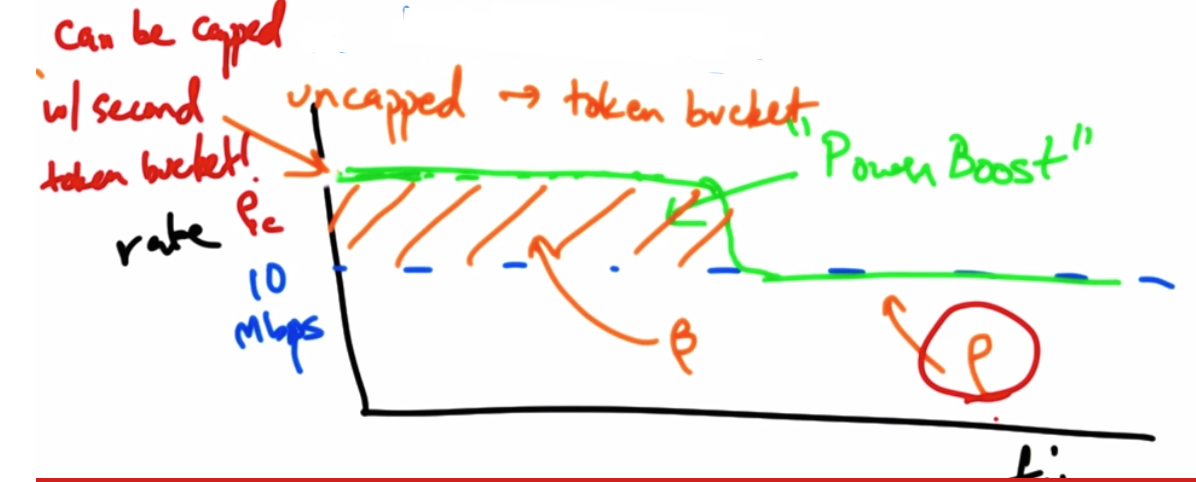 Can be capped
w/ second
token bucket!
uncapped → token bucket
"Power Boost"
ρc
rate
10
Mbps
β
ρ